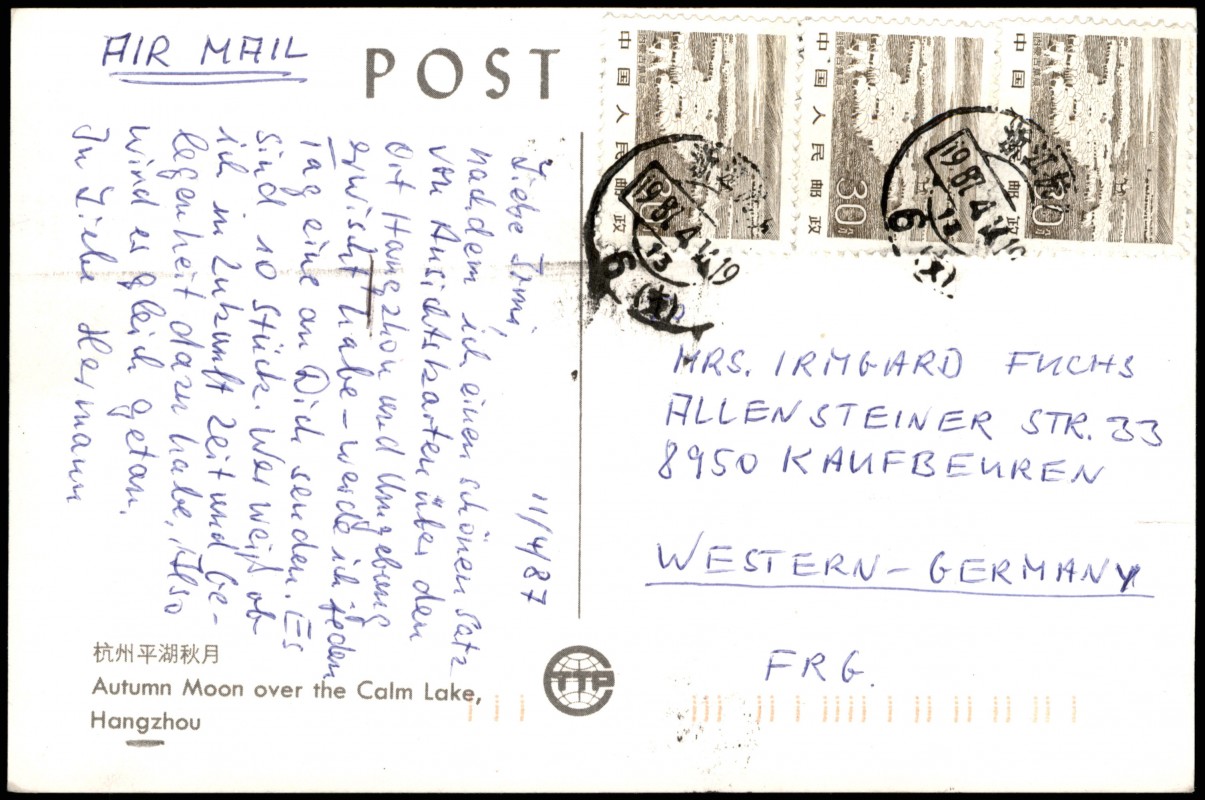 AIR MAIL
POST
11/4/87
Liebe Irmi,
nachdem ich einen schönen Satz
von Ansichtskarten über den
Ort Hangzhou und Umgebung
erwischt habe – werde ich jeden
Tag eine an Dich senden. Es
sind 10 Stück. Wer weiß ob
ich in Zukunft Zeit und Ge-
legenheit dazu habe. Also
wird es gleich getan.
In Liebe Hermann
杭州平湖秋月
Autumn Moon over the Calm Lake,
Hangzhou
TTP
中国人民邮政
30
中国人民邮政
30
中国人民邮政
30
浙江
1987.4.12.19
13
6
(支)
浙江杭
1987.4.12.19
13
6
(支)
MRS. IRMGARD FUCHS
ALLENSTEINER STR. 33
8950 KAUFBEUREN
WESTERN-GERMANY
FRG.